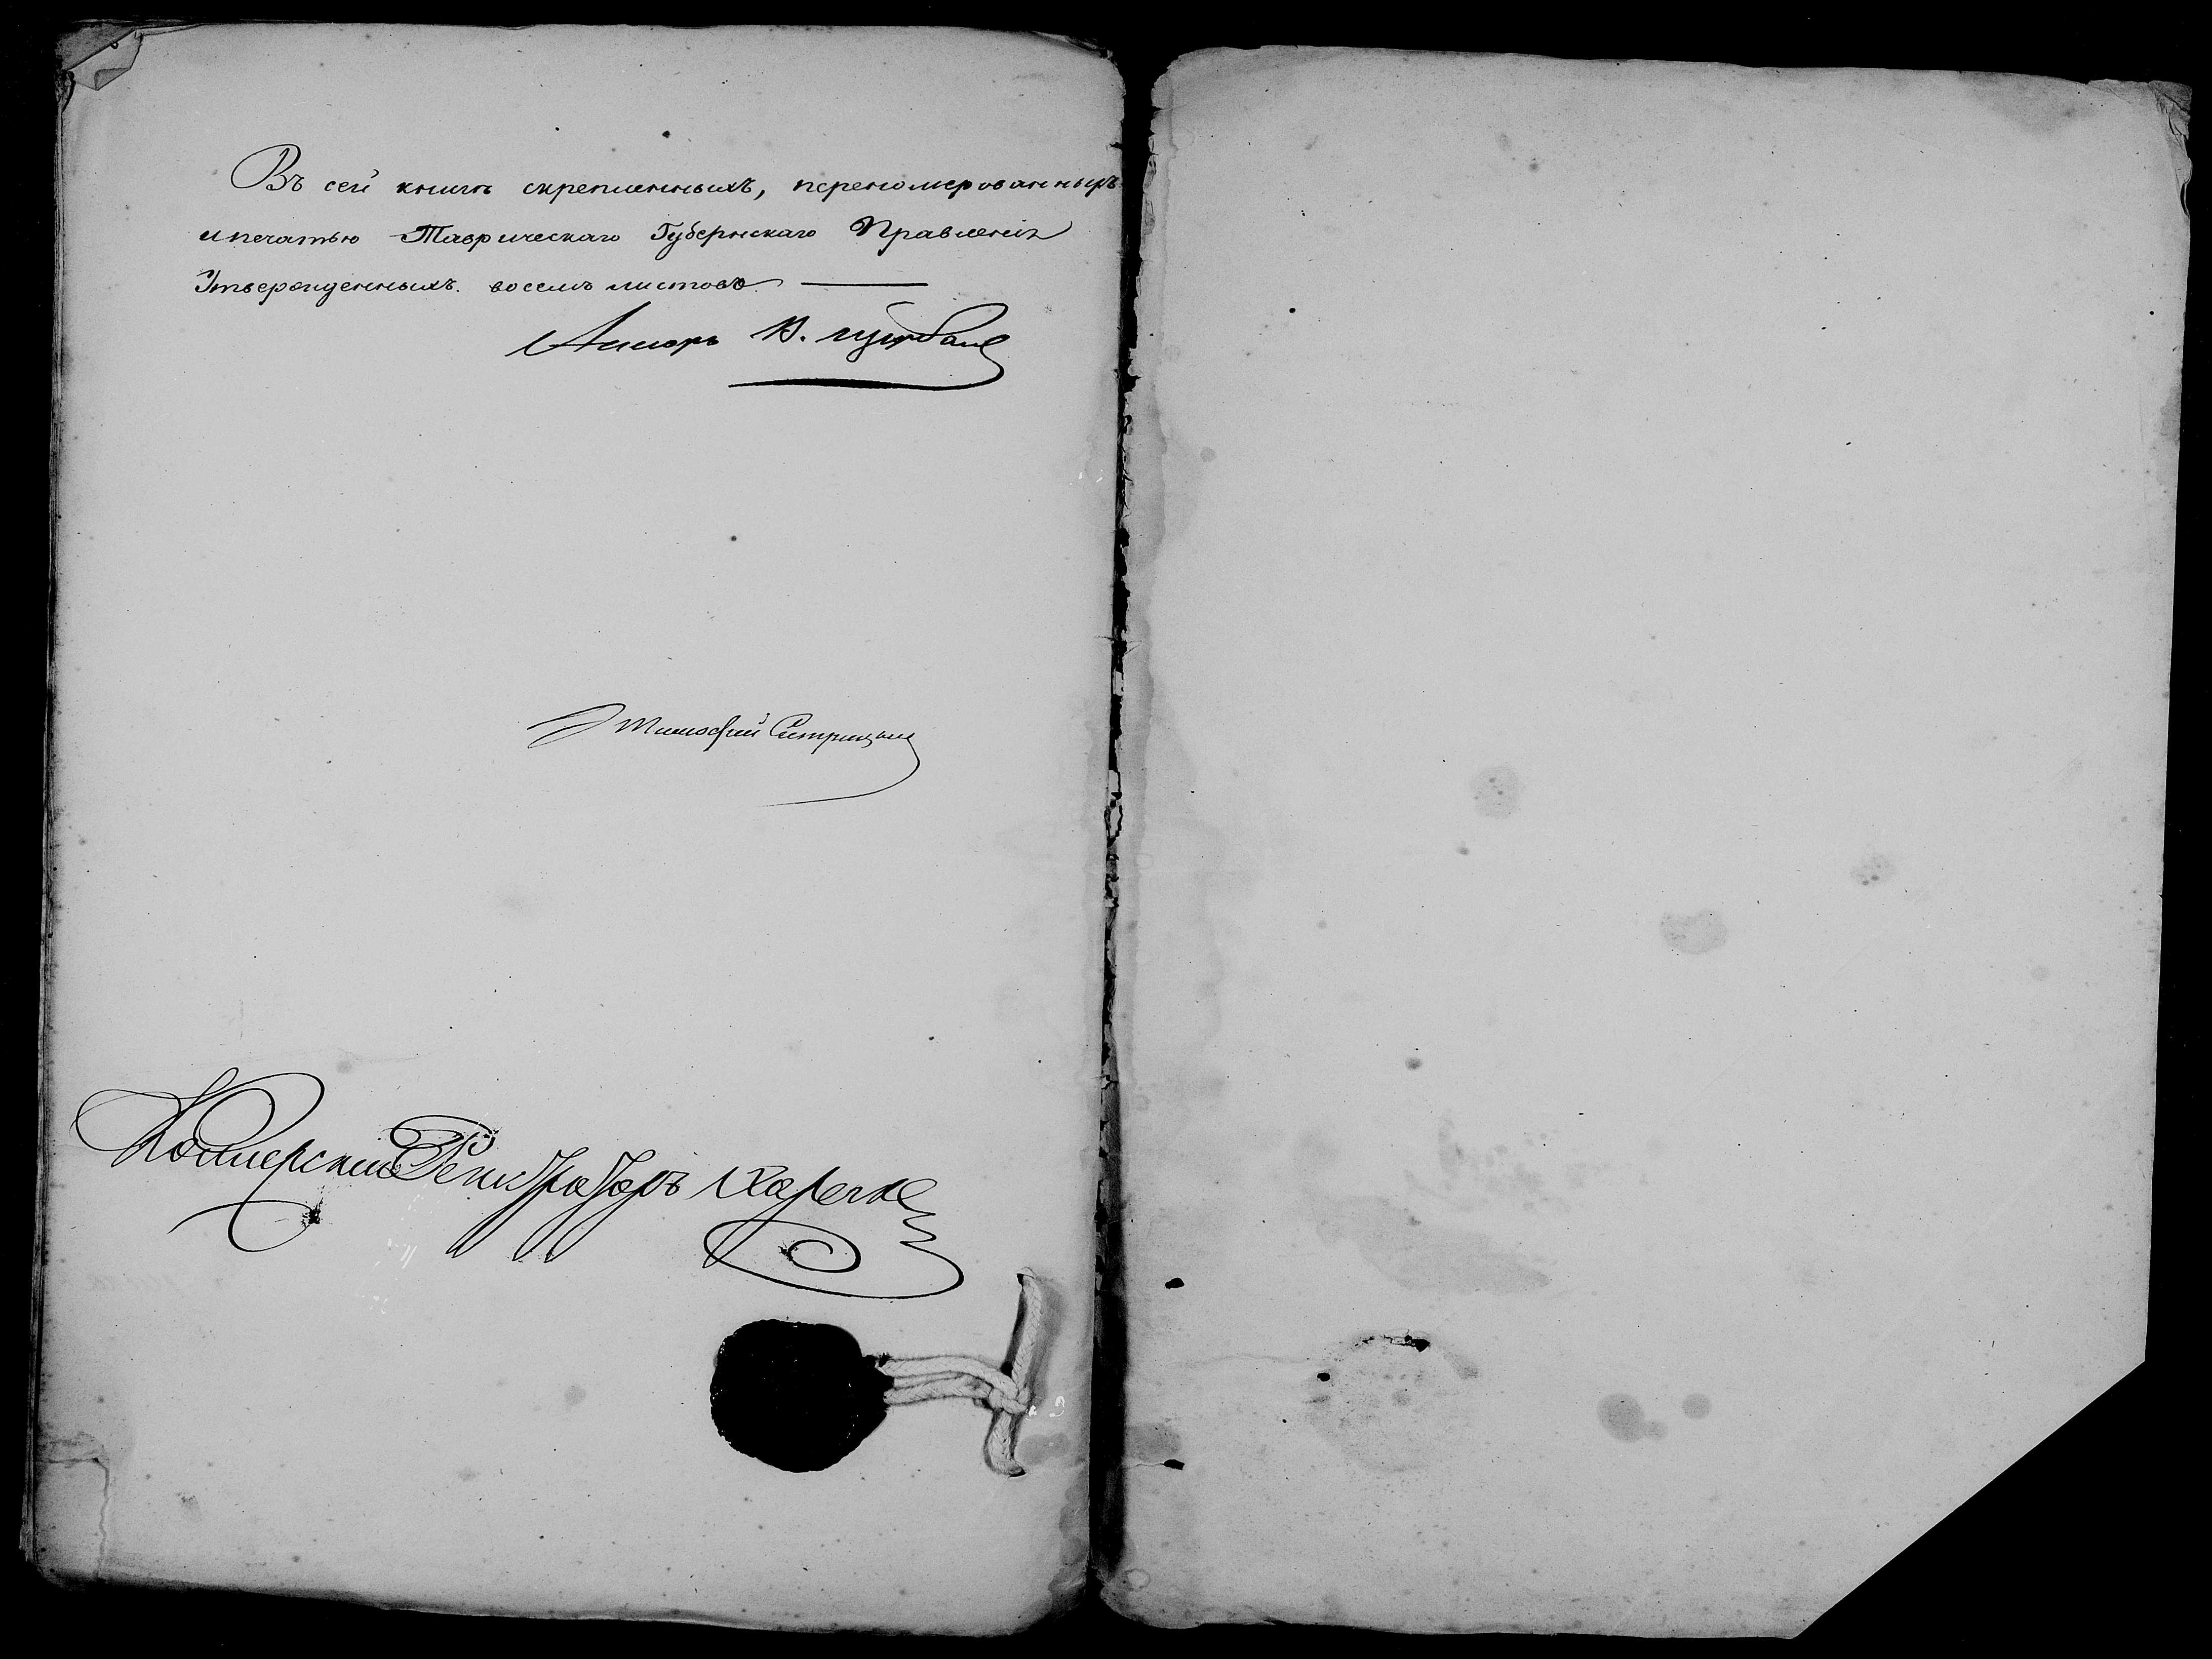 Въ сей книгѣ скрепленныхъ, переномерованныхъ
и печатью Таврическаго Губернскаго Правленія
Утвержденныхъ восемь листовъ
Тимофей
Коллерский Регистраторъ